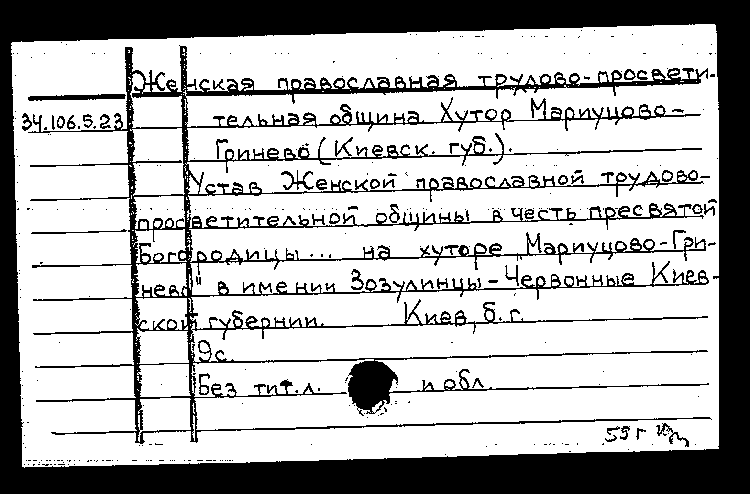 Женская православная трудово-просвети-
34.106.5.23 тельная община. Хутор Мариуцово-
Гринево (Киевск. губ.).
Устав Женской православной трудово-
просветительной общины в честь пресвятой
Богородицы... на хуторе „Мариуцово-Гри-
нево" в имении Зозулинцы-Червонные Киев-
ской губернии. Киев, б.г.
9с.
Без тит.л. и обл.
59 г